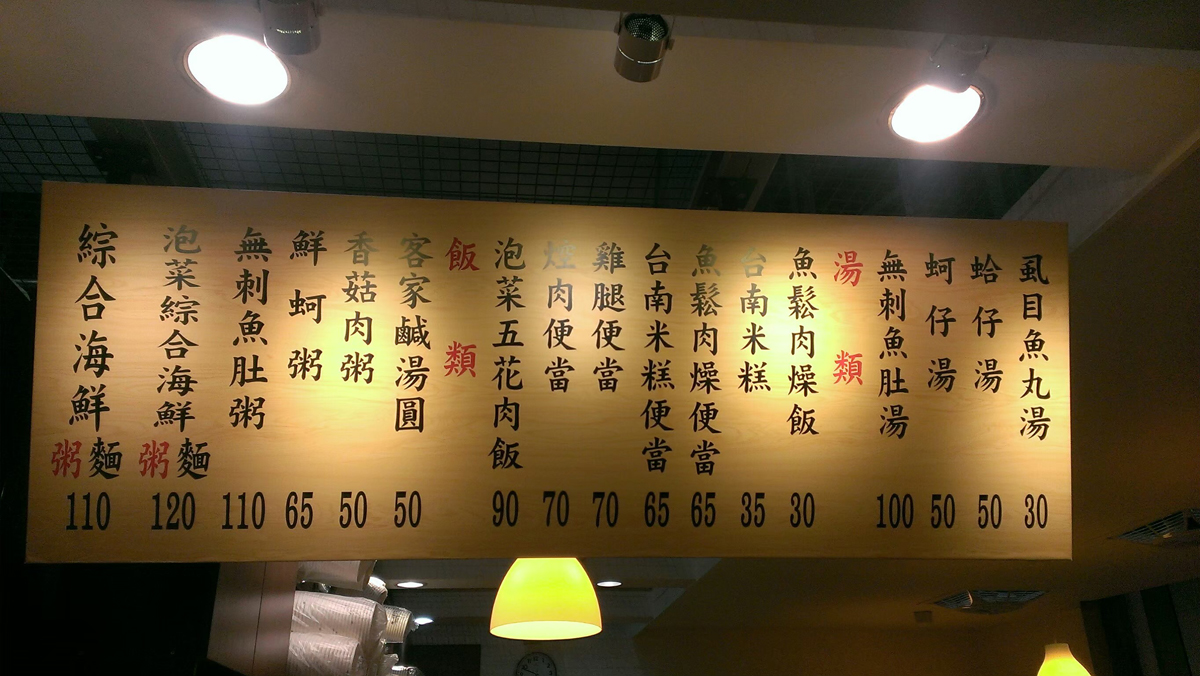 綜合海鮮粥麵 110
泡菜綜合海鮮粥麵 120
無刺魚肚粥 110
鮮蚵粥 65
香菇肉粥 50
客家鹹湯圓 50
飯類
泡菜五花肉飯 90
肉便當 70
雞腿便當 70
台南米糕便當 65
魚鬆肉燥便當 65
台南米糕 35
魚鬆肉燥飯 30
湯類
無刺魚肚湯 100
蚵仔湯 50
蛤仔湯 50
虱目魚丸湯 30